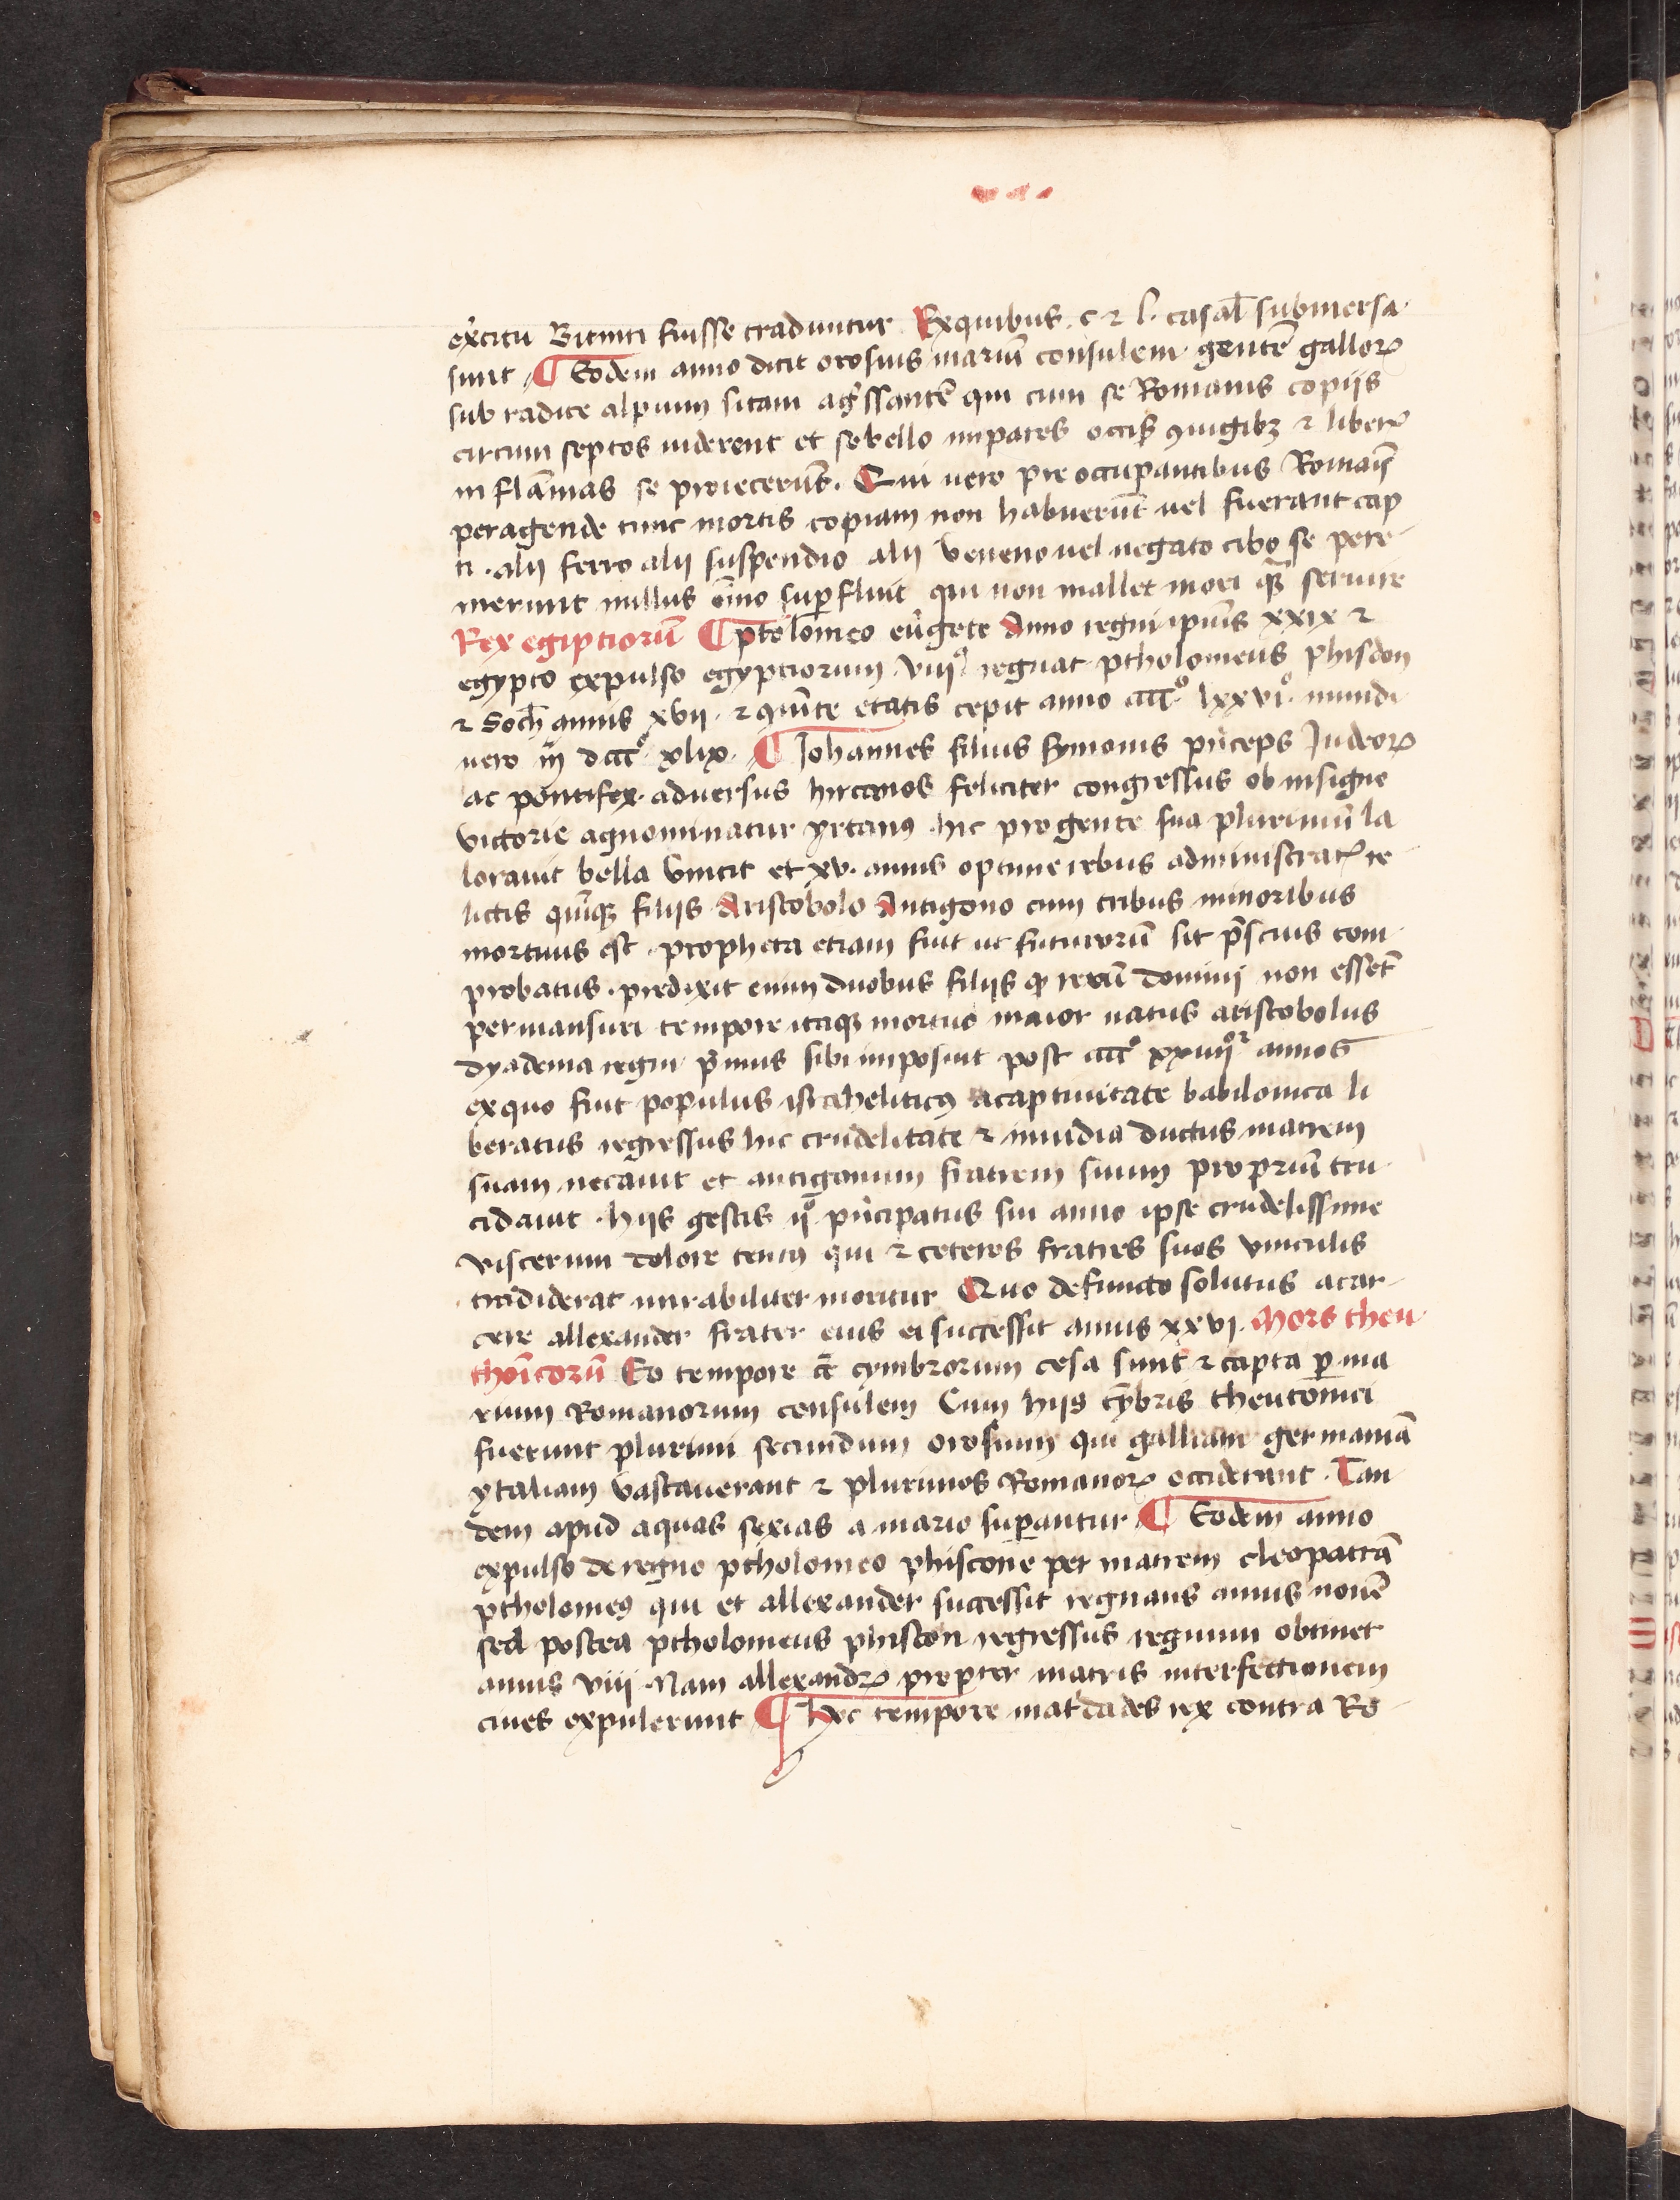 exͥcitu Bituiti fuisse traduntur Exquibus . c ⁊ l . casal̄ submersa
sunt ¶ Eodem anno dicit orosius mariū consulem gentē galloꝝ
sub radice alpium sitam ag̊ssantē qui cum se Romanis copijs
circum septos uiderent et se bello impares occis̄ ꝯiugibꝫ ⁊ liberꝭ
in flāmas se proiecerūt . Qui uero pre occupantibus Romaīs
peragende tunc mortis copiam non habuerūt uel fuerant cap
ti . alij ferro alij suspendio alij veneno uel negato cibo se pere
merunt nullus om̄ino suꝑfluit qui non mallet mori qꝫ̄ seruire
Rex egiptiorū ¶ ptolomeo eūgete Anno regni ipiūs xxix ⁊
egypto expulso egyptiorum viijꝰ regnat ptholomeus phiscon
⁊ Soch̄ annis xvij . ⁊ quīte etatis cepit anno cccc̊ lxxvi̊ . mundi
uero iij̄ dccc̊ xlix . ¶ Johannes filius symonis pͥnceps Judeoꝝ
ac pontifex . aduersus hircanos feliciter congressus ob insigne
victorie agnominatur yrcanꝰ hic pro gente sua plurimū la
borauit bella vincit et xv . annis optime rebus administratꝭ re
lictis quīqꝫ filijs Aristobolo Antigono cum tribus minoribus
mortuus est . propheta etiam fuit ut futurorū sit p̄scius com
probatus . predixit enim duobus filijs ꝙ rerū domini non essēt
permansuri tempore itaqꝫ mortuo maior natus aristobolus
dyadema regni pͥmus sibi imposuit post cccc̊ xxiiijoꝛ annos
exquo fuit populus israheliticꝰ acaptiuitate babilonica li
beratus regressus hic crudelitate ⁊ inuidia ductus matrem
suam necauit et antigonum fratrem suum propriū tru
cidauit . hijs gestis ijo pͥncipatus sui anno ipse crudelissime
viscerum dolore tentꝰ qui ⁊ ceteros fratres suos vinculis
tradiderat mirabiliter moritur Quo defuncto solutus acar
cere allexander frater eius ei successit annis xxvi . Mors theu
thoīcorū Eo tempore cc̄ cymbrorum cesa sunt ⁊ capta ꝑ ma
rium Romanorum consulem Cum hijs cȳbris theutonici
fuerunt plurimi secundum orosium qui galliam germaniā
ytaliam vastauerant ⁊ plurimos Romanoꝝ occiderant . Tan
dem apud aquas sexias a mario suꝑantur ¶ Eodem anno
expulso de regno ptholomeo phiscone per matrem cleopatrā
ptholomeꝰ qui et allexander successit regnans annis nouē
sed postea ptholomeus phiscon regressus regnum obtinet
annis viij Nam allexandꝝ propter matris interfectionem
ciues expulerunt ¶ Hoc tempore matͥdades rex contra Ro